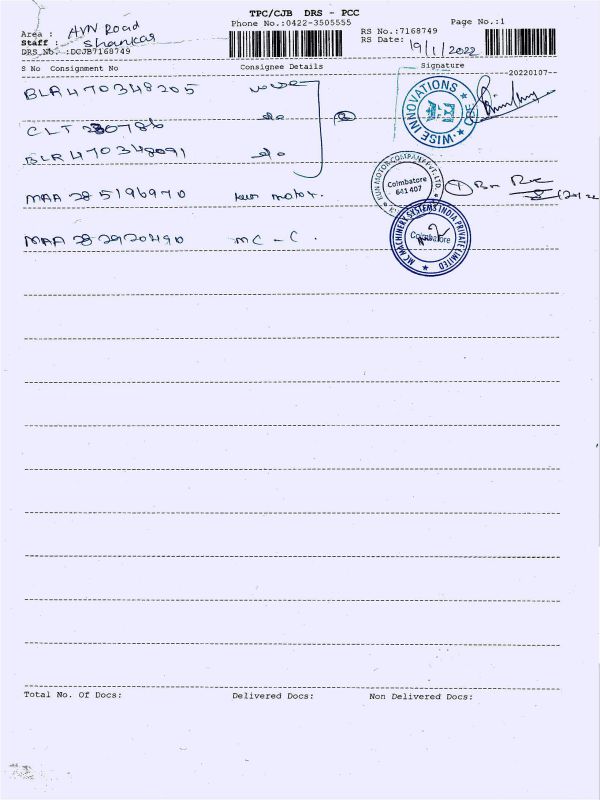 TPC/CJB DRS - PCC
Phone No.:0422-3505555
Page No.:1
Area : AVN Road
Staff : Shankar
DRS No. :DCJB7168749
RS No.:7168749
RS Date: 19/1/2022
S No Consignment No Consignee Details Signature
--20220107--
BLR470348205
WISE INNOVATIONS
CBE
CLT
BLR470348091
KUN MOTOR COMPANY PVT. LTD.
Coimbatore
641 407
MAA 285196970 kun motor.
MAA 282920490 MC - C .
MC MACHINERY SYSTEMS INDIA PRIVATE LIMITED
Coimbatore
Total No. Of Docs: Delivered Docs: Non Delivered Docs: